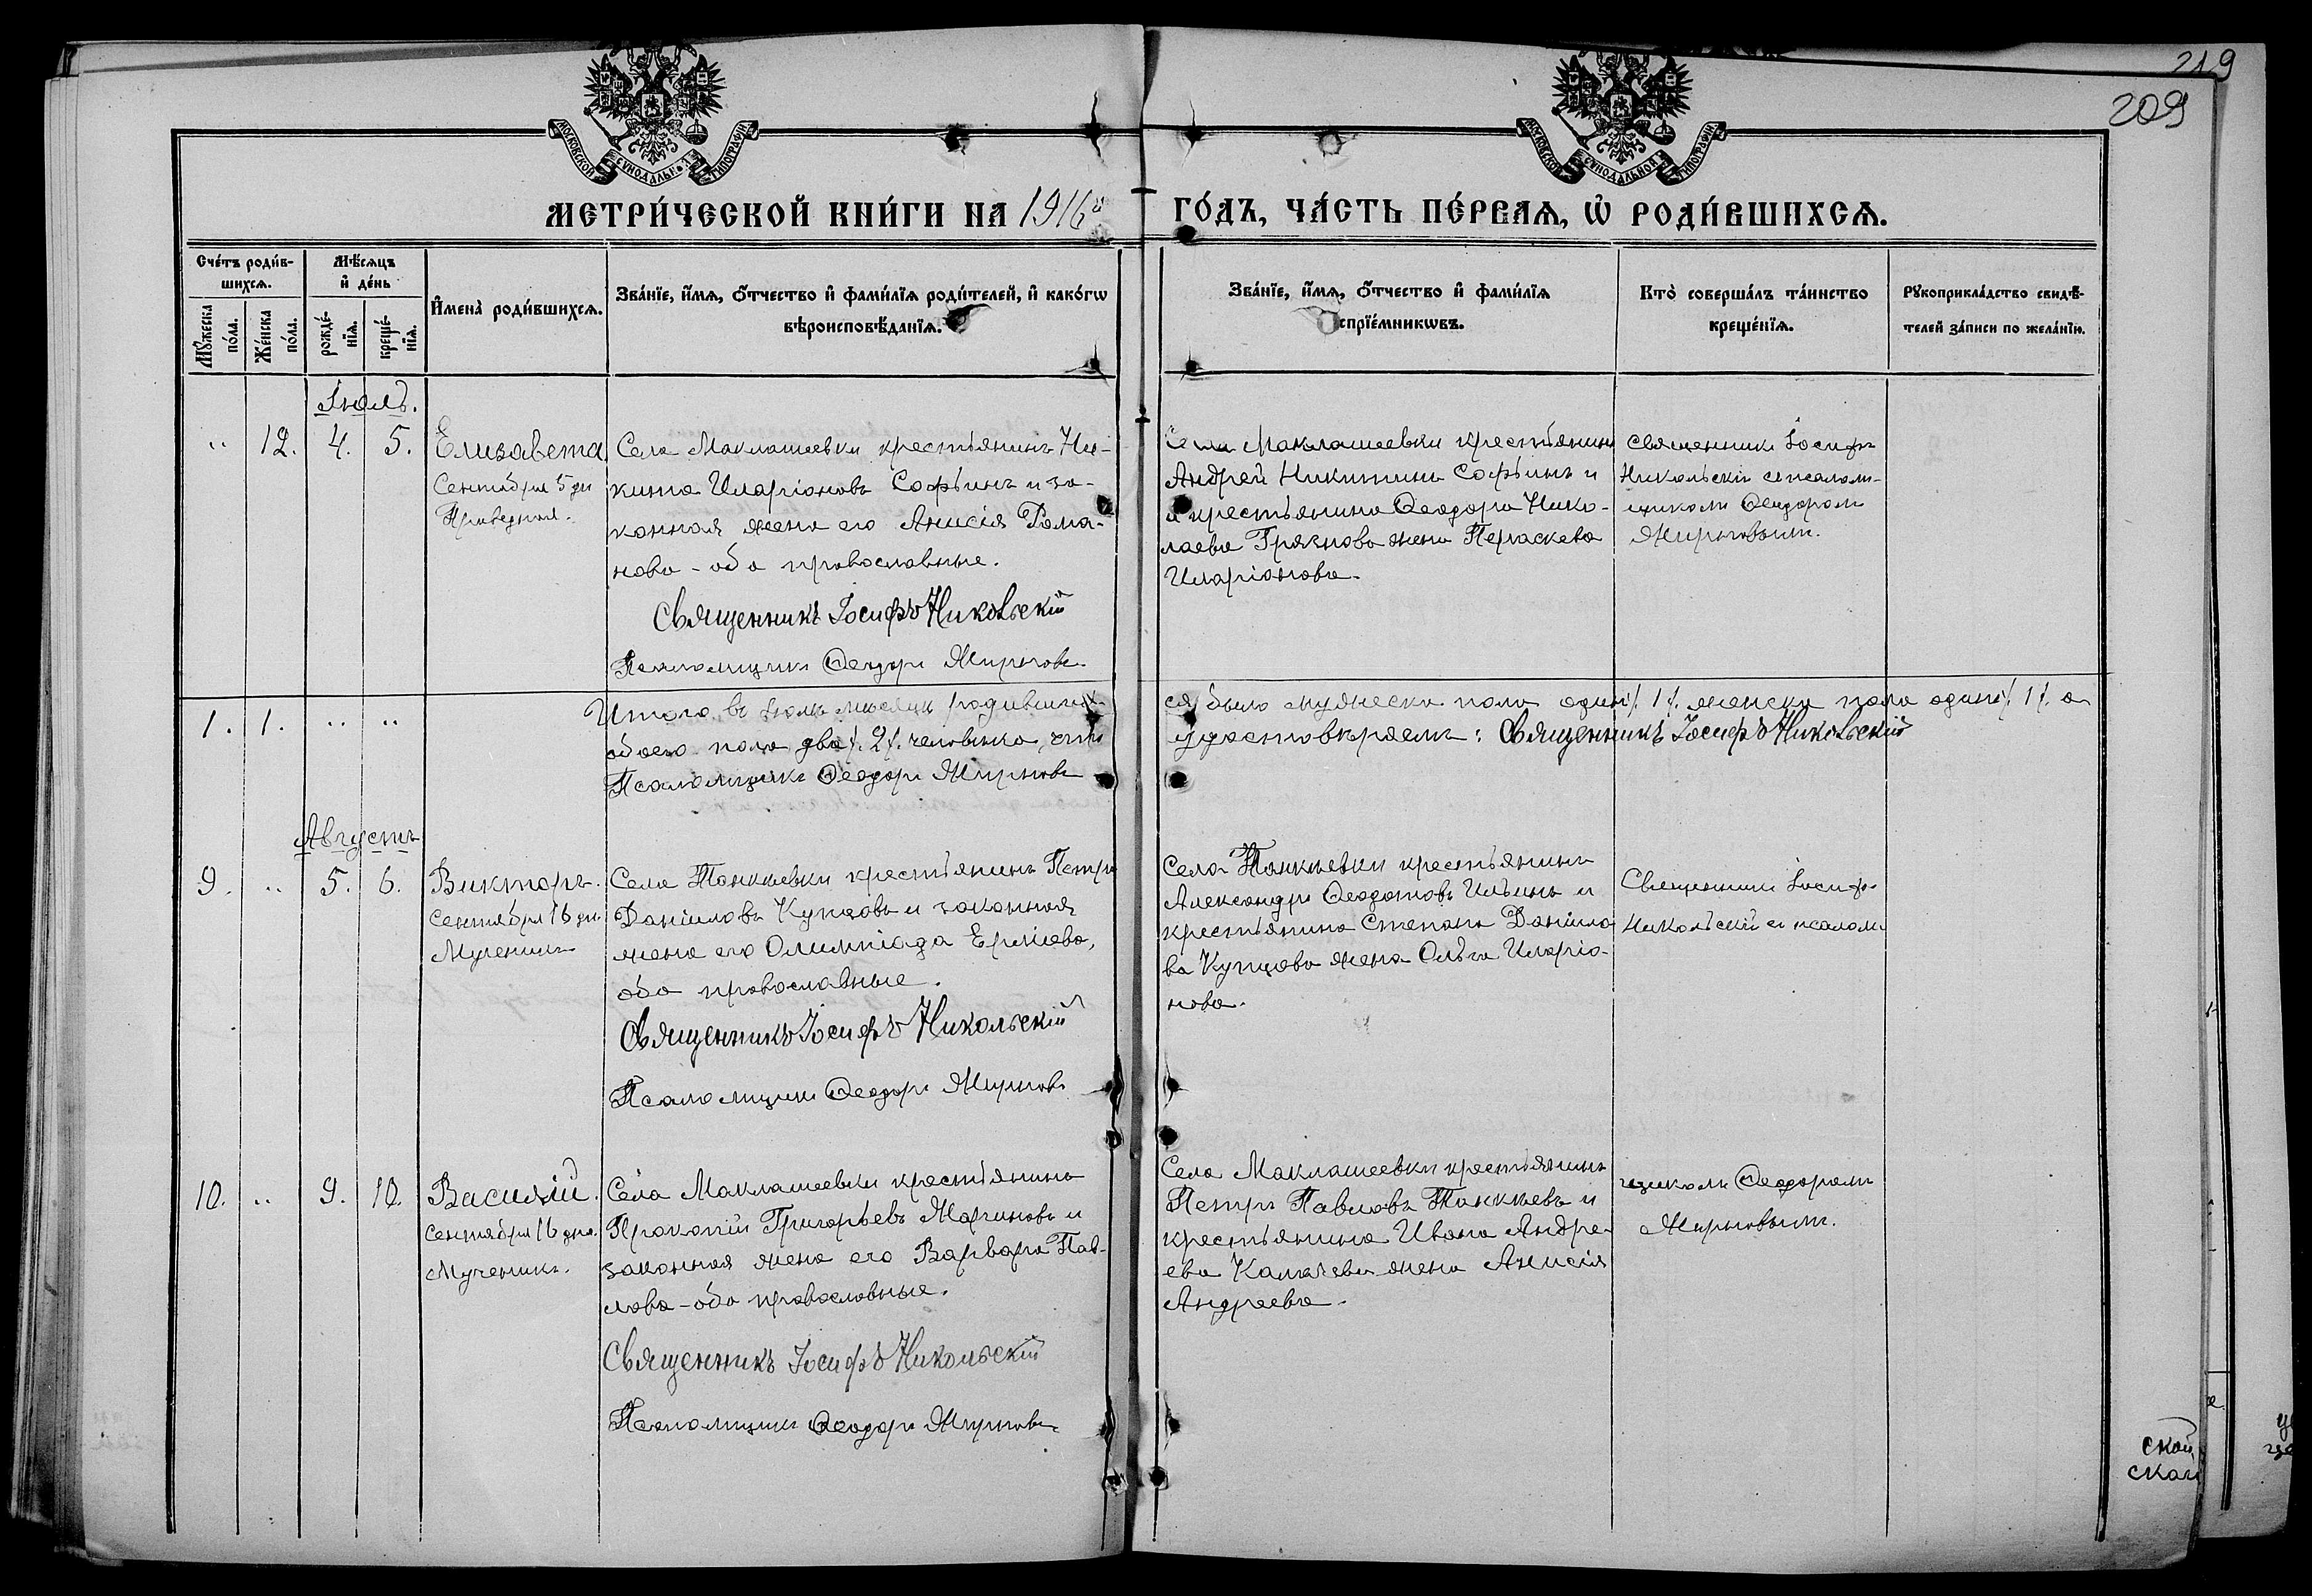 219
209
МОСКОВСКОЙ СѴНОДАЛЬНОЙ ТИПОГРАФІИ
МОСКОВСКОЙ СѴНОДАЛЬНОЙ ТИПОГРАФІИ
МЕТРИ́ЧЕСКОЙ КНИ́ГИ НА 1916й ГО́ДЪ, ЧА́СТЬ ПЕ́РВАѦ, Ѽ РОДИ́ВШИХСѦ.
Сче́тъ роди́в-
шихсѧ.
Мꙋ́жеска
по́ла.
Же́нска
по́ла.
Мѣ́сѧцъ
и҆ де́нь
рожде́-
нїѧ.
креще́-
нїѧ.
И҆мена̀ роди́вшихсѧ.
Зва́нїе, и҆́мѧ, ѻ҆́тчество и҆ фами́лїѧ роди́телей, и҆ како́гѡ
вѣроисповѣ́данїѧ.
Зва́нїе, и҆́мѧ, ѻ҆́тчество и҆ фами́лїѧ
спрїе́мникѡвъ.
Кто̀ соверша́лъ та́инство
креще́нїѧ.
Рꙋкоприкла́дство свидѣ́-
телей за́писи по жела́нїю.
Іюль.
" 12. 4. 5.
Елизавета
Сентября 5 дн
Праведная.
Села Маклашеевки крестьянинъ Ни-
кита Иларіоновъ Софьинъ и за-
конная жена его Анисія Рома-
нова - оба православные.
Священникъ Іосифъ Никольскій
Псаломщикъ Ѳеодоръ Жирновъ
Села Маклашеевки крестьянинъ
Андрей Никитинъ Софьинъ и
крестьянина Ѳеодора Нико-
лаева Грязнова жена Параскева
Иларіонова.
Священникъ Іосифъ
Никольскій съ псалом-
щикомъ Ѳеодоромъ
Жирновымъ.
1. 1. " "
Итого въ іюлѣ мѣсяцѣ родивших-
ся было мужеска пола одинъ /.1/. женска пола одинъ /.1/. а
обоего пола два /.2/. человѣка, что
удостовѣряемъ: Священникъ Іосифъ Никольскій
Псаломщикъ Ѳеодоръ Жирновъ
Августъ
9. " 5. 6.
Викторъ.
Сентября 16 дн.
Мученикъ
Села Танкѣевки крестьянинъ Петръ
Даніиловъ Купцовъ и законная
жена его Олимпіада Ерміева,
оба православные.
Священникъ Іосифъ Никольскій
Псаломщикъ Ѳеодоръ Жирновъ
Села Танкѣевки крестьянинъ
Александръ Ѳедотовъ Ильинъ и
крестьянина Степана Даніило
ва Купцова жена Ольга Иларіо-
нова.
Священникъ Іосифъ
Никольскій съ псалом-
10. " 9. 10.
Василій.
Сентября 16 дня.
Мученикъ.
Села Маклашеевки крестьянинъ
Прокопій Григорьевъ Мариновъ и
законная жена его Варвара Пав-
лова - оба православные.
Священникъ Іосифъ Никольскій
Псаломщикъ Ѳеодоръ Жирновъ
Села Маклашеевки крестьянинъ
Петръ Павловъ Танкѣевъ и
крестьянина Ивана Андре-
ева Калачева жена Анисія
Андреева.
щикомъ Ѳеодоромъ
Жирновымъ.
ской
ской